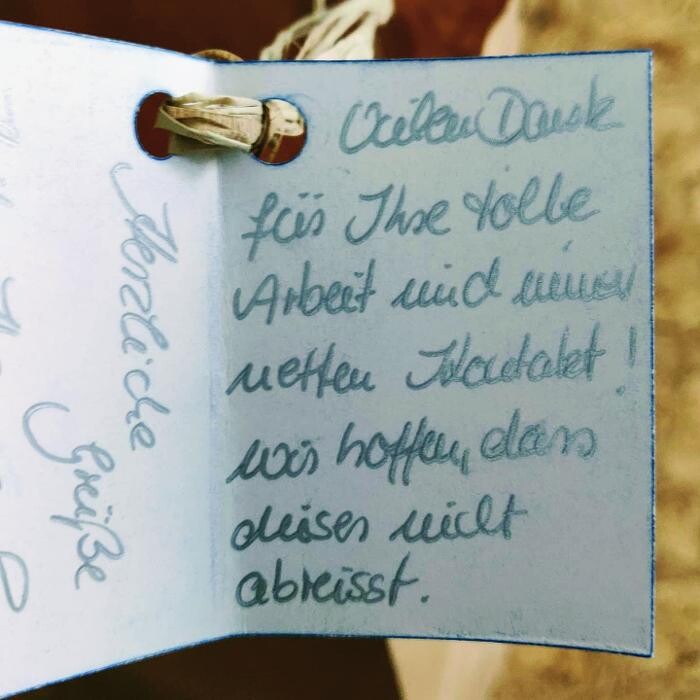 Vielen Dank
für Ihre tolle
Arbeit und immer
netten Kontakt!
wir hoffen, dass
dieser nicht
abreisst.
Herzliche
Grüße